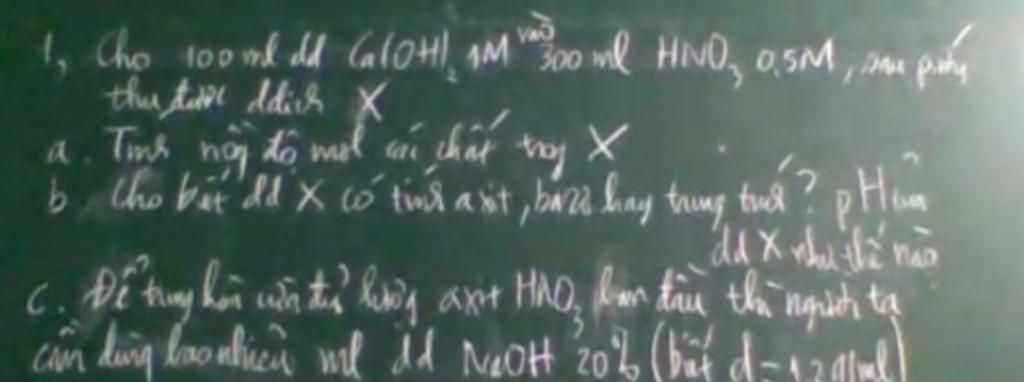 1, Cho 100 ml dd Ca(OH)₂ 1M vào 300 ml HNO₃ 0,5M, sau pứng
thu được ddịch X
a. Tính nồng độ mol các chất trong X
b Cho biết dd X có tính axit, bazơ hay trung tính? pH của
dd X như thế nào
c. Để trung hòa vừa đủ lượng axit HNO₃ ban đầu thì người ta
cần dùng bao nhiêu ml dd NaOH 20% (biết d = 1,2 g/ml)